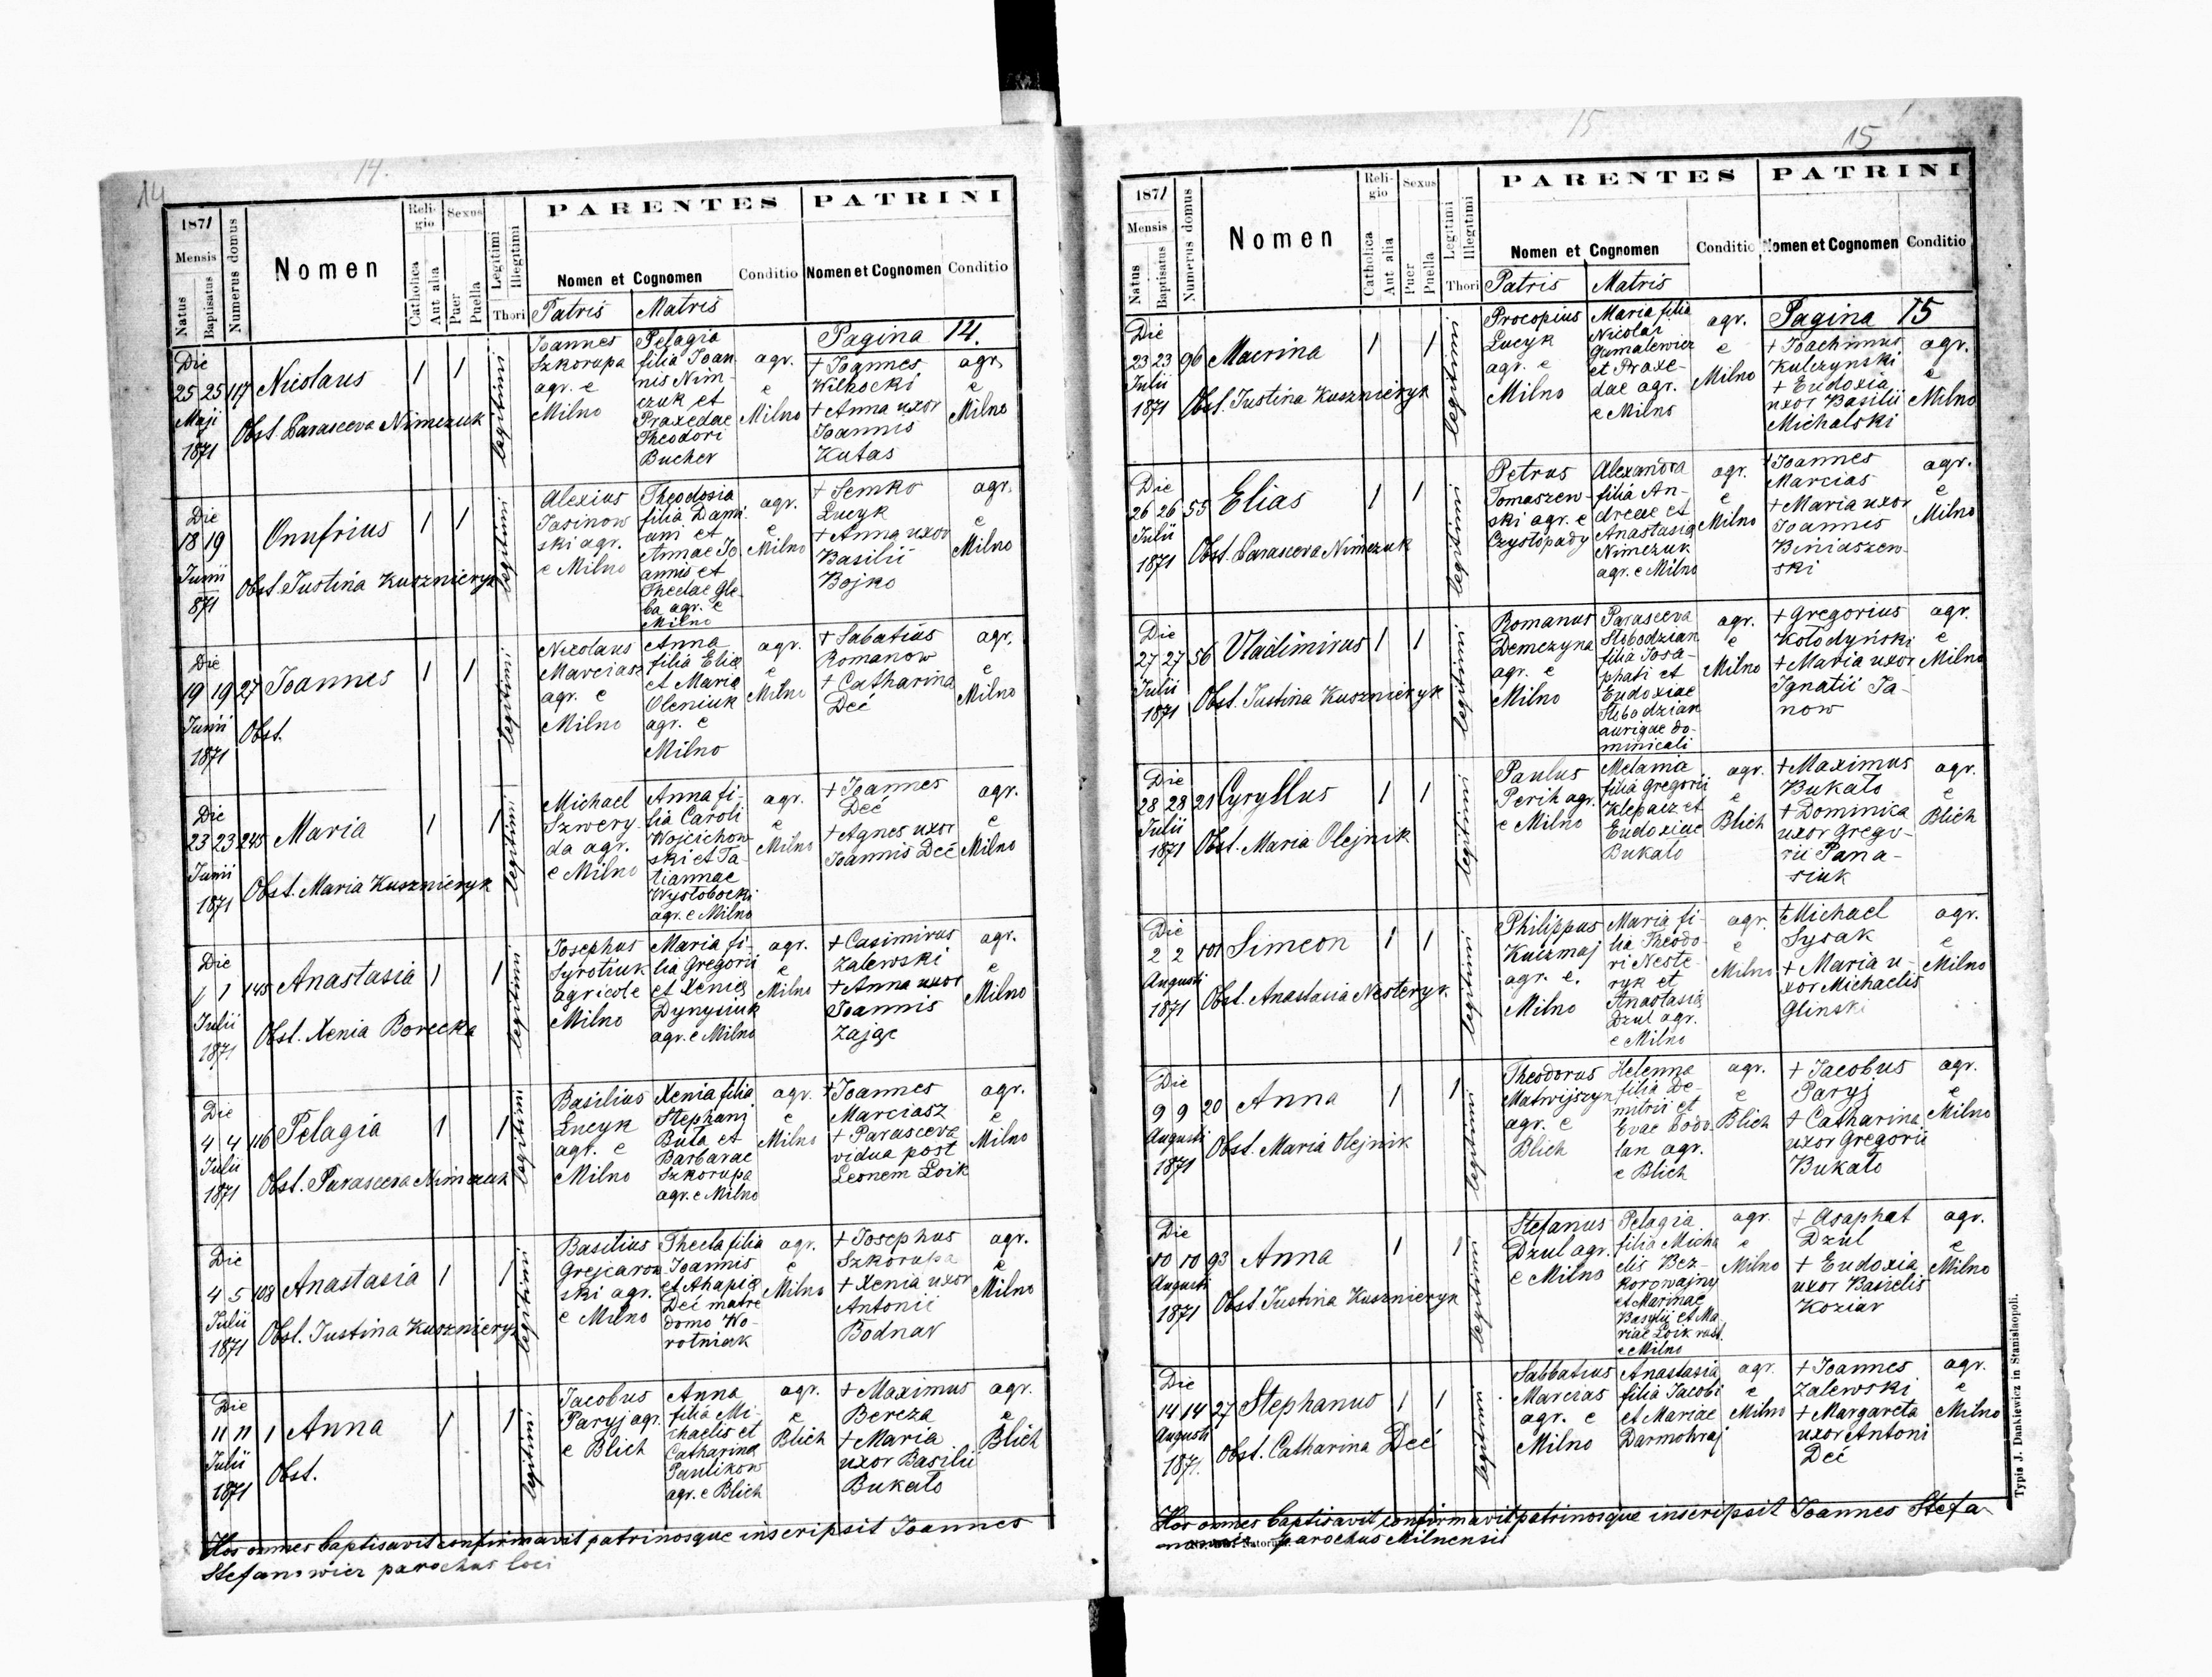 14
14.
1871
Mensis
Natus
Baptisatus
Numerus domus
Nomen
Religio
Catholica
Aut alia
Sexus
Puer
Puella
Legitimi
Illegitimi
Thori
PARENTES
Nomen et Cognomen
Patris
Matris
Conditio
PATRINI
Nomen et Cognomen
Conditio
Pagina 14.
Die
25 25 117 Nicolaus 1 1
Maji
1871
Obst. Parasceva Nimczuk
legitimi
Joannes
Szkorupa
agr. e
Milno
Pelagia
filia Joan
nis Nim-
czuk et
Praxedae
Theodori
Bucher
agr.
e
Milno
+ Joannes
Witkocki
+ Anna uxor
Joannis
Kutas
agr.
e
Milno
Die
18 19 Onufrius 1 1
Junii
871
Obst. Justina Kusznieryk
legitimi
Alexius
Jasinow
ski agr.
e Milno
Theodosia
filia Dami
ani et
Annae Jo
annis et
Theclae Gle-
ba agr. e
Milno
agr.
e
Milno
+ Semko
Lucyk
+ Anna uxor
Basilii
Bojko
agr.
e
Milno
Die
19 19 27 Joannes 1 1
Junii
1871
Obst.
legitimi
Nicolaus
Marciasz
agr. e
Milno
Anna
filia Eliae
et Maria
Oleniuk
agr. e
Milno
agr.
e
Milno
+ Sabatius
Romanow
+ Catharina
Deć
agr.
e
Milno
Die
23 23 245 Maria 1 1
Junii
1871
Obst. Maria Kusznieryk
legitimi
Michael
Szwery-
da agr.
e Milno
Anna fi-
lia Caroli
Wojcichow
ski et Ta-
tiannae
Wysłobocki
agr. e Milno
agr.
e
Milno
+ Joannes
Deć
+ Agnes uxor
Joannis Deć
agr.
e
Milno
Die
1 1 145 Anastasia 1 1
Julii
1871
Obst. Xenia Borecka
legitimi
Josephus
Syrotiuk
agricole
Milno
Maria fi-
lia Gregorii
et Xenia
Dynysiuk
agr. e Milno
agr.
e
Milno
+ Casimirus
Zalewski
+ Anna uxor
Joannis
Zając
agr.
e
Milno
Die
4 4 116 Pelagia 1 1
Julii
1871
Obst. Parasceva Nimczuk
legitimi
Basilius
Lucyk
agr. e
Milno
Xenia filia
Stephani
Buta et
Barbarae
Szkorupa
agr. e Milno
agr.
e
Milno
+ Joannes
Marciasz
+ Parasceva
vidua post
Leonem Loik
agr.
e
Milno
Die
4 5 108 Anastasia 1 1
Julii
1871
Obst. Justina Kusznieryk
legitimi
Basilius
Grejcarow
ski agr.
e Milno
Thecla filia
Joannis
et Ahapia
Deć matre
domo Wo-
rotniak
agr.
e
Milno
+ Josephus
Szkorupa
+ Xenia uxor
Antonii
Bodnar
agr.
e
Milno
Die
11 11 1 Anna 1 1
Julii
1871
Obst.
legitimi
Jacobus
Paryj agr.
e Blich
Anna
filia Mi-
chaelis et
Catharina
Pawlikow
agr. e Blich
agr.
e
Blich
+ Maximus
Bereza
+ Maria
uxor Basilii
Bukało
agr.
e
Blich
Hos omnes baptisavit confirmavit patrinosque inscripsit Joannes
Stefanowicz parochus loci
15
15
1871
Mensis
Natus
Baptisatus
Numerus domus
Nomen
Religio
Catholica
Aut alia
Sexus
Puer
Puella
Legitimi
Illegitimi
Thori
PARENTES
Nomen et Cognomen
Patris
Matris
Conditio
PATRINI
Nomen et Cognomen
Conditio
Pagina 15
Die
23 23 96 Macrina 1 1
Julii
1871
Obst. Justina Kusznieryk
legitimi
Procopius
Lucyk
agr. e
Milno
Maria filia
Nicolai
Gamalewicz
et Praxe-
dae agr.
e Milno
agr.
e
Milno
+ Joachimus
Kulczynski
+ Eudoxia
uxor Basilii
Michalski
agr.
e
Milno
Die
26 26 55 Elias 1 1
Julii
1871
Obst. Parasceva Nimczuk
legitimi
Petrus
Tomaszew-
ski agr. e
Czystopady
Alexandra
filia An-
dreae et
Anastasia
Nimczuk
agr. e Milno
agr.
e
Milno
+ Joannes
Marcias
+ Maria uxor
Joannes
Biniaszew-
ski
agr.
e
Milno
Die
27 27 56 Vladimirus 1 1
Julii
1871
Obst. Justina Kusznieryk
legitimi
Romanus
Demczyna
agr. e
Milno
Parasceva
Słobodzian
filia Josa-
phati et
Eudoxiae
Słobodzian
aurigae do-
minicali
agr.
e
Milno
+ Gregorius
Kołodyński
+ Maria uxor
Ignatii Ja-
now
agr.
e
Milno
Die
28 28 21 Cyryllus 1 1
Julii
1871
Obst. Maria Olejnik
legitimi
Paulus
Perih agr.
e Milno
Melania
filia Gregorii
Klepacz et
Eudoxiae
Bukało
agr.
e
Blich
+ Maximus
Bukało
+ Dominica
uxor Grego-
rii Pana-
siuk
agr.
e
Blich
Die
2 2 101 Simeon 1 1
Augusti
1871
Obst. Anastasia Nesteryk
legitimi
Philippus
Kuczmaj
agr. e.
Milno
Maria fi-
lia Theodo-
ri Neste-
ryk et
Anastasia
Dzul agr.
e Milno
agr.
e
Milno
+ Michael
Sysak
+ Maria u-
xor Michaelis
Glinski
agr.
e
Milno
Die
9 9 20 Anna 1 1
Augusti
1871
Obst. Maria Olejnik
legitimi
Theodorus
Matwijszyn
agr. e
Blich
Helenna
filia De-
mitrii et
Evae Bodo-
lan agr.
e Blich
agr.
e
Blich
+ Jacobus
Paryj
+ Catharina
uxor Gregorii
Bukało
agr.
e
Milno
Die
10 10 93 Anna 1 1
Augusti
1871
Obst. Justina Kusznieryk
legitimi
Stefanus
Dzul agr.
e Milno
Pelagia
filia Micha
elis Bez-
korowajny
et Marinae
Basylii et Ma-
riae Loik rust.
e Milno
agr.
e
Milno
+ Asaphat
Dzul
+ Eudoxia
uxor Basielis
Koziar
agr.
e
Milno
Die
14 14 27 Stephanus 1 1
Augusti
1871.
Obst. Catharina Deć
legitimi
Sabbatius
Marcias
agr. e
Milno
Anastasia
filia Jacobi
et Mariae
Darmohraj
agr.
e
Milno
+ Joannes
Zalewski
+ Margareta
uxor Antoni
Deć
agr.
e
Milno
Hos omnes baptisavit, confirmavit patrinosque inscripsit Joannes Stefa-
parochus Milnensis
Typis J. Dankiewicz in Stanislaopoli.